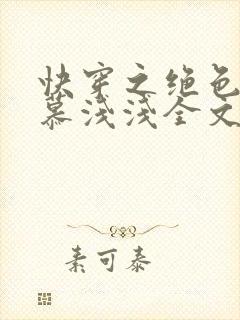 快穿之绝色
慕浅浅全文
素可泰